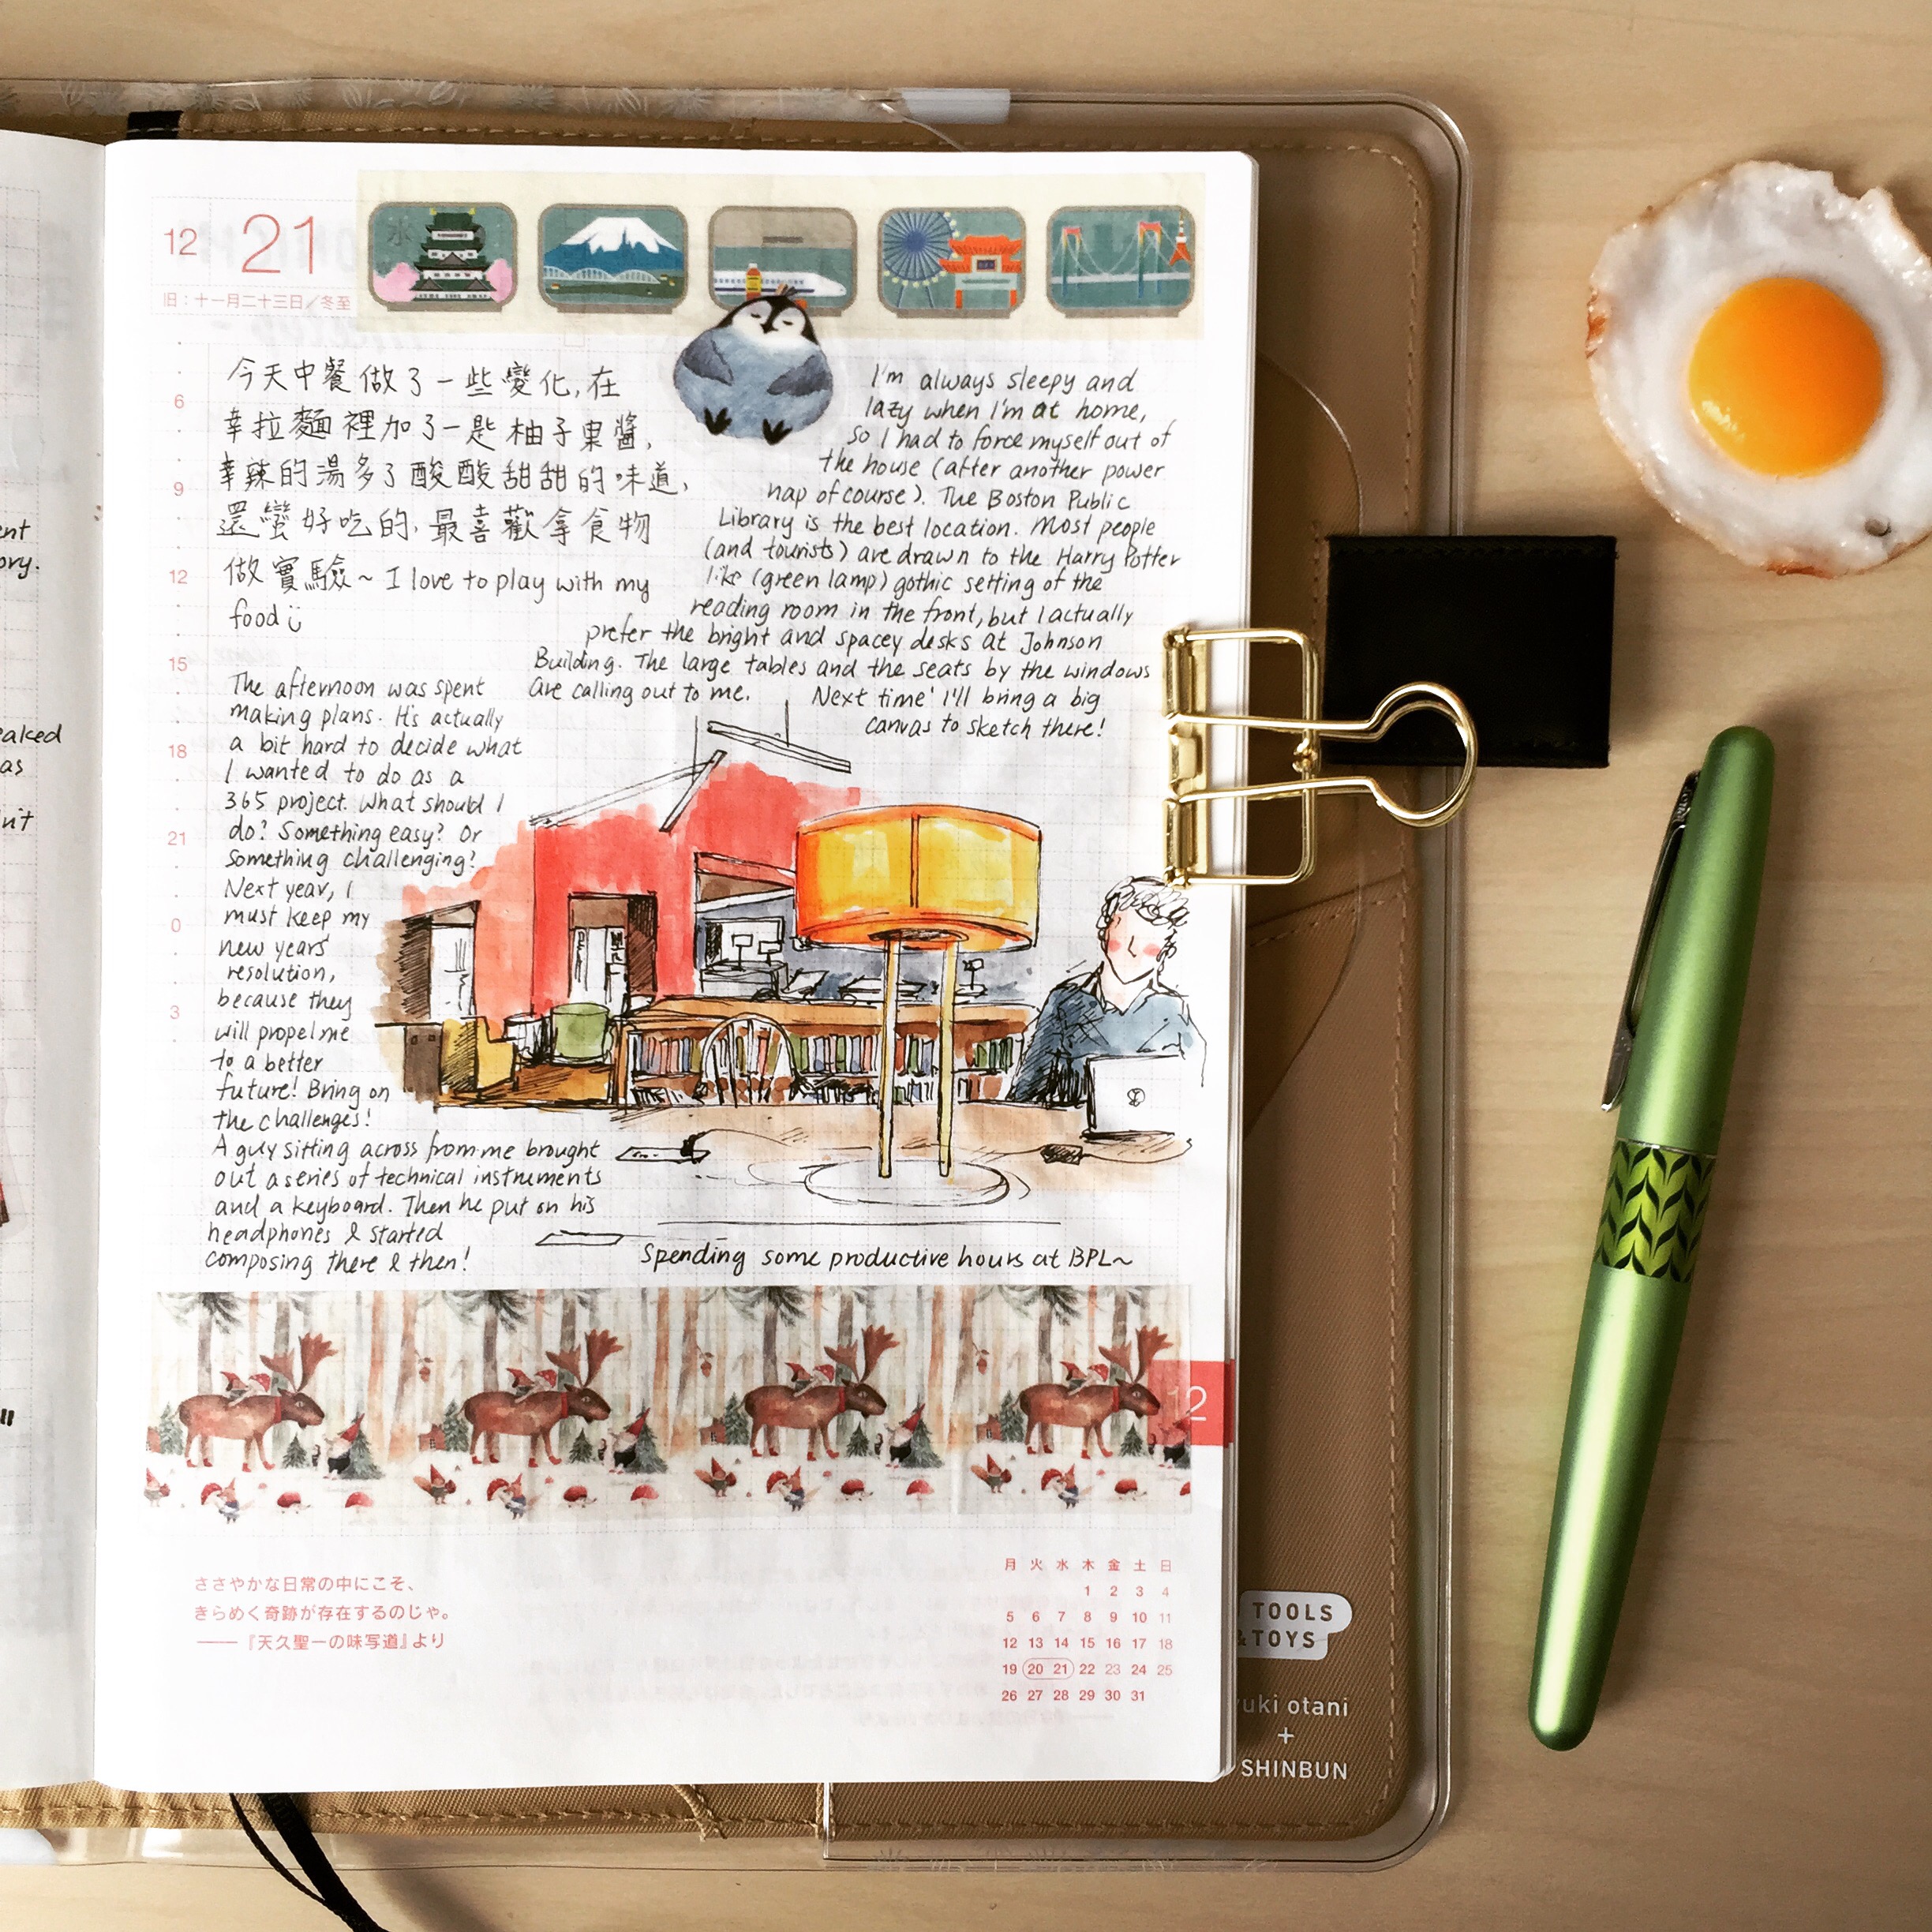 12 21
旧：十一月二十三日／冬至
今天中餐做了一些變化,在
辛拉麵裡加了一匙柚子果醬,
辛辣的湯多了酸酸甜甜的味道,
還蠻好吃的,最喜歡拿食物
做實驗~ I love to play with my
food
I'm always sleepy and
lazy when I'm at home,
so I had to force myself out of
the house (after another power
nap of course). The Boston Public
Library is the best location. Most people
(and tourists) are drawn to the Harry Potter
like (green lamp) gothic setting of the
reading room in the front, but I actually
prefer the bright and spacey desks at Johnson
Building. The large tables and the seats by the windows
are calling out to me. Next time I'll bring a big
canvas to sketch there!
The afternoon was spent
making plans. It's actually
a bit hard to decide what
I wanted to do as a
365 project. What should I
do? Something easy? Or
something challenging?
Next year, I
must keep my
new years'
resolution,
because they
will propel me
to a better
future! Bring on
the challenges!
A guy sitting across from me brought
out a series of technical instruments
and a keyboard. Then he put on his
headphones & started
composing there & then!
Spending some productive hours at BPL~
6
9
12
15
18
21
0
3
12
ささやかな日常の中にこそ、
きらめく奇跡が存在するのじゃ。
——『天久聖一の味写道』より
月 火 水 木 金 土 日
1 2 3 4
5 6 7 8 9 10 11
12 13 14 15 16 17 18
19 20 21 22 23 24 25
26 27 28 29 30 31
TOOLS
&TOYS
yuki otani
+
SHINBUN